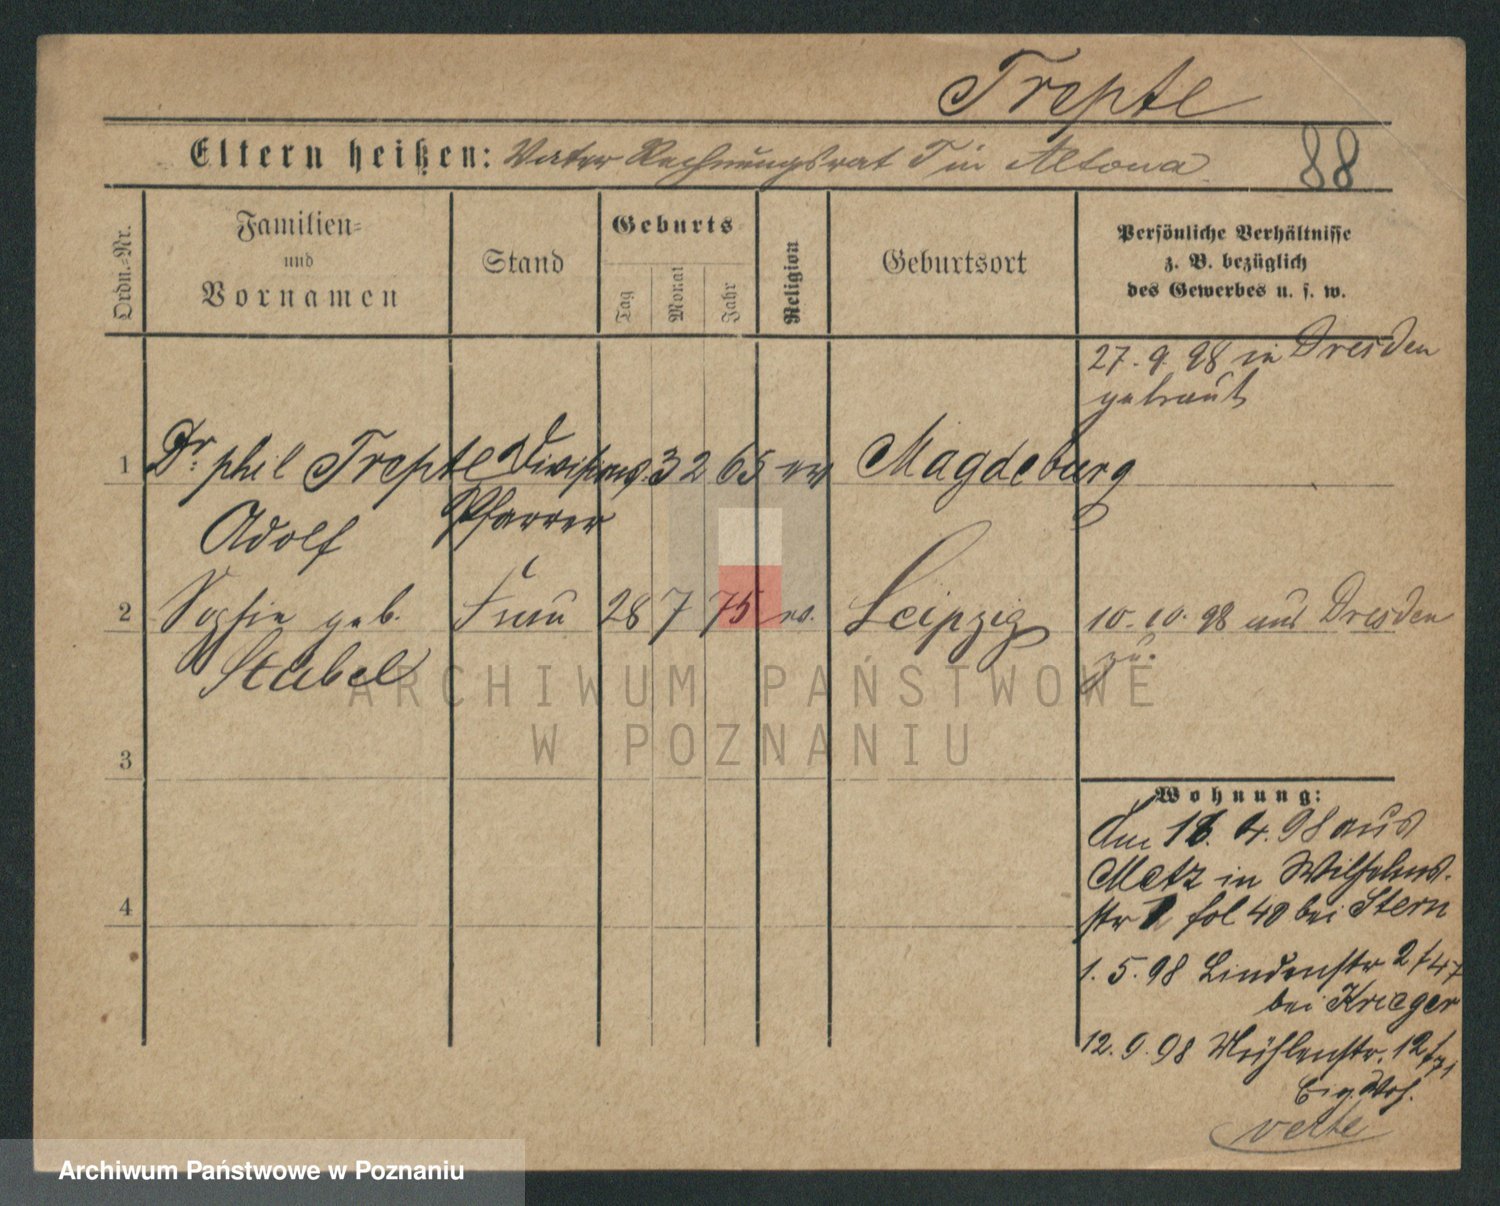 Trepte
Eltern heißen: Vater Rechnungsrat T in Altona
88
Ordn.-Nr.
Familien-
und
Vornamen
Stand
Geburts
Tag
Monat
Jahr
Religion
Geburtsort
Persönliche Verhältnisse
z. B. bezüglich
des Gewerbes u. s. w.
27. 9. 98 in Dresden
getraut
1 Dr. phil Trepte Divisions. 3 2 65 ev Magdeburg
Adolf Pfarrer
2 Sophie geb. Frau 28 7 75 ev. Leipzig 10. 10. 98 aus Dresden
zu.
Stübel
ARCHIWUM PAŃSTWOWE
W POZNANIU
3
Wohnung:
Am 18. 4. 98 aus
Metz in Wilhelms-
4
str 1 fol 40 bei Stern
1. 5. 98 Lindenstr 2 f 47
bei Krieger
12. 9. 98 Mühlenstr. 12 f 71
Eig. Woh.
verte
Archiwum Państwowe w Poznaniu